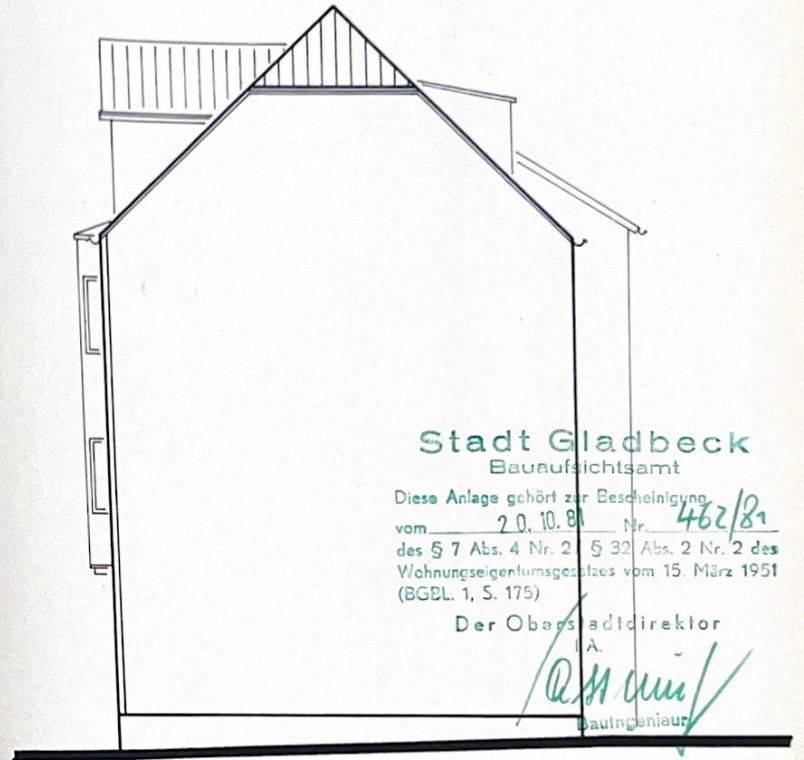 Stadt Gladbeck
Bauaufsichtsamt
Diese Anlage gehört zur Bescheinigung
vom 20.10.81 Nr. 462/81
des § 7 Abs. 4 Nr. 2 § 32 Abs. 2 Nr. 2 des
Wohnungseigentumsgesetzes vom 15. März 1951
(BGBL. 1, S. 175)
Der Oberstadtdirektor
I.A.
Bauingenieur